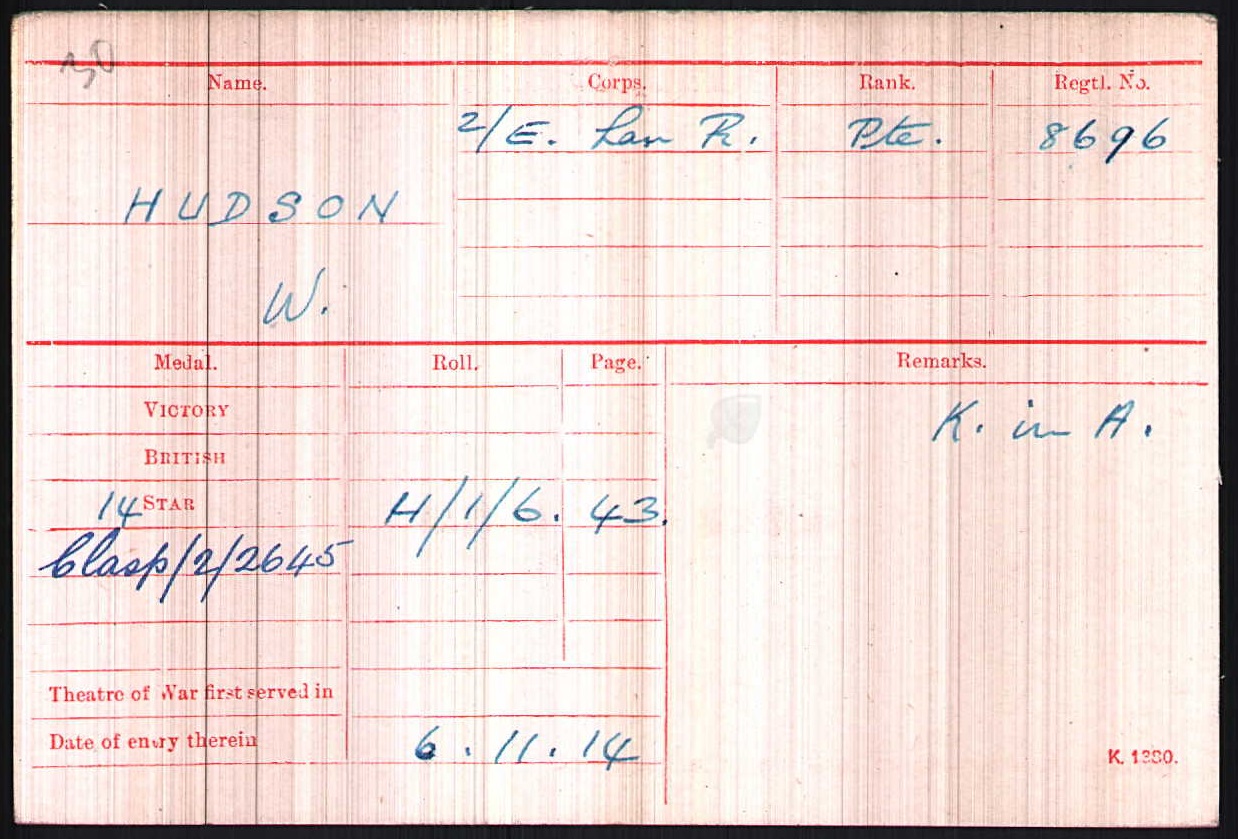 30
Name. Corps. Rank. Regtl. No.
2/E. Lan R. Pte. 8696
HUDSON
W.
Medal. Roll. Page. Remarks.
VICTORY
K. in A.
BRITISH
14 STAR H/1/6. 43.
Clasp/2/2645
Theatre of War first served in
Date of entry therein 6.11.14
K. 1380.